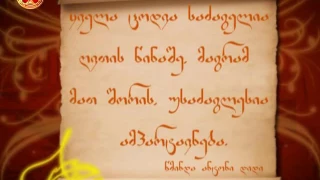 ყველა ცოდვა საძაგელია
ღვთის წინაშე. მაგრამ
მათ შორის, უსაძაგლესია
ამპარტავნება.
წმინდა ანტონი დიდი